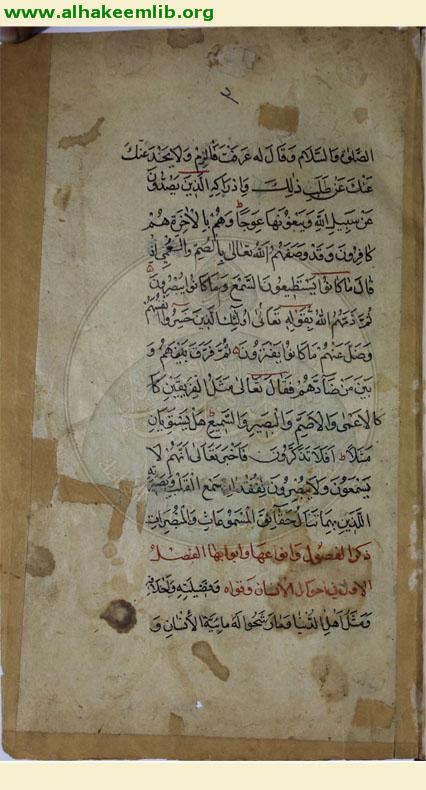 www.alhakeemlib.org
٢
الصلوة والسلام وقال له عرفت فالزم ولا يخدعنك
عنك عن طلب ذلك واذ باكه الذين يصدون
عن سبيل الله ويبغونها عوجا وهم بالاخرة هم
كافرون وقد وصفهم الله تعالى بالصم والعمى اذ
قال ما كانوا يستطيعون السمع وما كانوا يبصرون
ثم ذمهم الله بقوله تعالى اولئك الذين خسروا انفسهم
وضل عنهم ما كانوا يفترون ثم فرق بينهم و
بين من ضادهم فقال تعالى مثل الفريقين كا
كالاعمى والاصم والبصير والسميع هل يستويان
مثلا افلا تذكرون فاخبر تعالى انهم لا
يسمعون ولا يبصرون بفقدان سمع القلب وبصره
اللذين بهما تنال حقائق المسموعات والمبصرات
ذكر الفصول وانواعها وابوابها الفصل
الاول في احوال الانسان وقواه وفضيلته واخلاقه
ومثل اهل الدنيا وما رشحوا له ماهية الانسان و